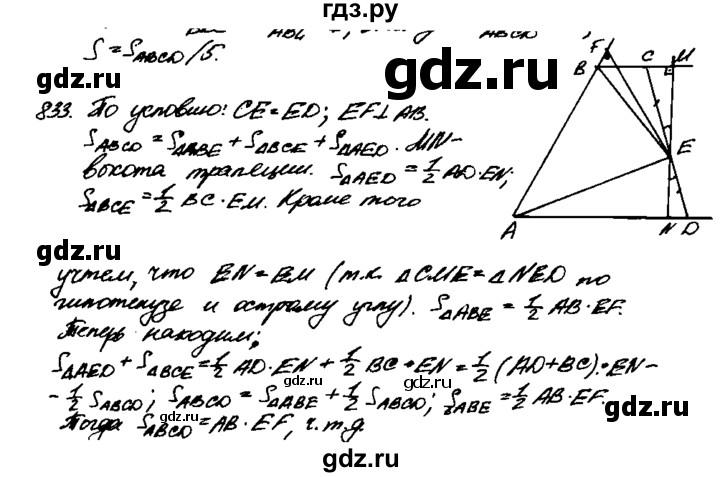 гдз.ру
S = S_ABCD / 5.
833. По условию: CE = ED; EF ⊥ AB.
S_ABCD = S_ΔABE + S_ΔBCE + S_ΔAED. MN -
высота трапеции. S_ΔAED = 1/2 AD · EN;
S_ΔBCE = 1/2 BC · EM. Кроме того
F B C E M
E
A N D
gdz.ru
учтем, что EN = EM (т.к. ΔCME = ΔNED по
гипотенузе и острому углу). S_ΔABE = 1/2 AB · EF.
Теперь находим;
S_ΔAED + S_ΔBCE = 1/2 AD · EN + 1/2 BC · EN = 1/2 (AD + BC) · EN -
- 1/2 S_ABCD; S_ABCD = S_ΔABE + 1/2 S_ABCD; S_ABE = 1/2 AB · EF.
Тогда S_ABCD = AB · EF, ч.т.д
gdz.ru